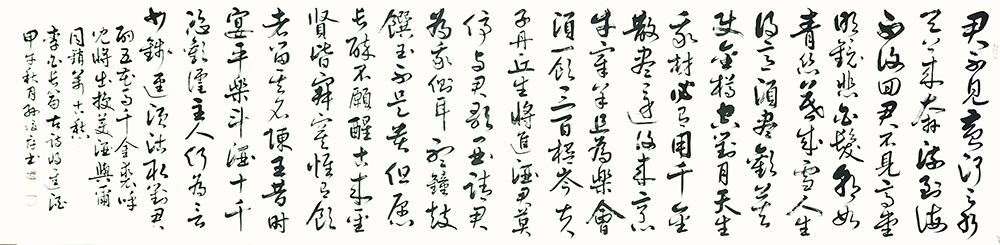 君不見黃河之水
天上來奔流到海
不復回君不見高堂
明鏡悲白髮朝如
青絲暮成雪人生
得意須盡歡莫
使金樽空對月天生
我材必有用千金
散盡還復來烹
羊宰牛且為樂會
須一飲三百杯岑夫
子丹丘生將進酒君莫
停與君歌一曲請君
為我側耳聽鐘鼓
饌玉不足貴但願
長醉不願醒古來聖
賢皆寂寞惟有飲
者留其名陳王昔時
宴平樂斗酒十千
恣歡謔主人何為言
少錢逕須沽取對君
酌五花馬千金裘呼
兒將出換美酒與爾
同銷萬古愁
李白長句古詩將進酒
甲午秋月孫書